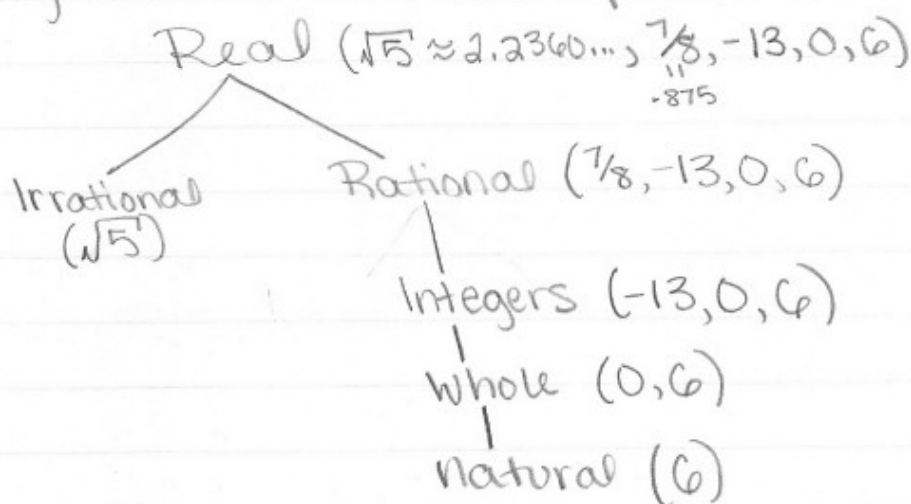 Real (√5 ≈ 2.2360..., 7/8, -13, 0, 6)
"
.875
Irrational
(√5)
Rational (7/8, -13, 0, 6)
Integers (-13, 0, 6)
Whole (0, 6)
Natural (6)